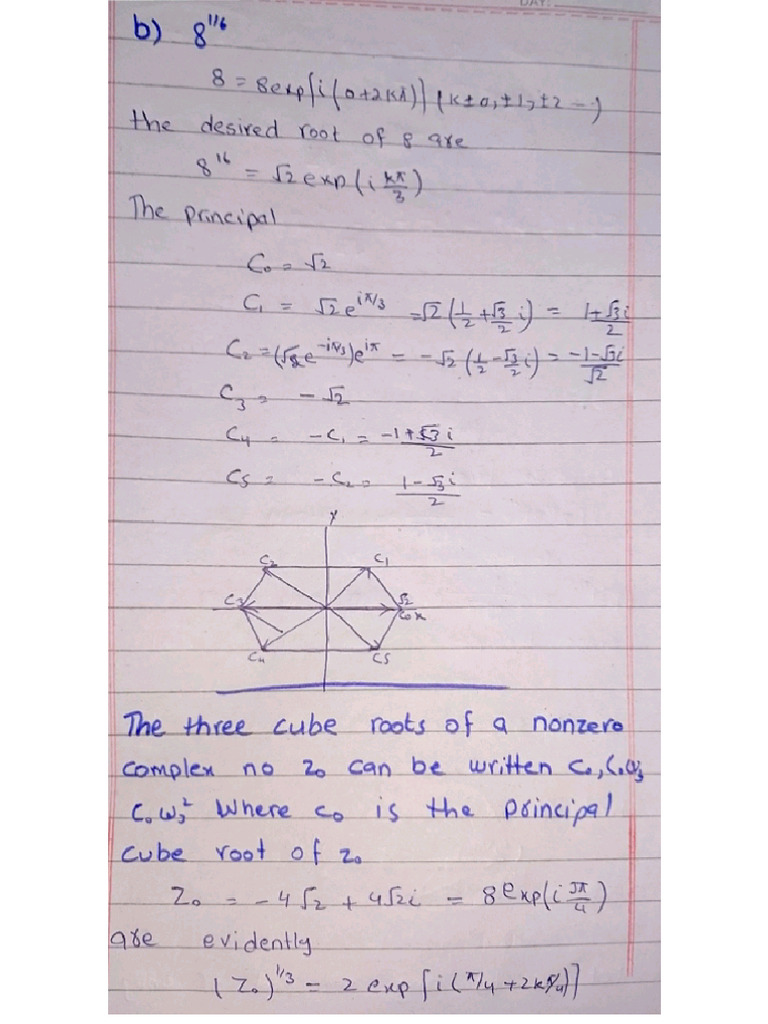 DAY:
b) 8^1/6
8 = 8exp[i(0+2kπ)] (k±0,±1,±2 --)
the desired root of 8 are
8^16 = √2 exp(i kπ/3)
The principal
C₀ = √2
C₁ = √2 e^iπ/3 = √2(1/2 + √3/2 i) = 1+√3i/2
C₂ = (√2e^-iπ/3)e^iπ = -√2(1/2 - √3/2 i) = -1-√3i/√2
C₃ = -√2
C₄ = -C₁ = -1+√3 i/2
C5 = -C₂ = 1-√3i/2
Y
C₂ C₁
C₃ √2
C₀ x
C₄ C5
The three cube roots of a nonzero
complex no z₀ can be written C₀, C₀ω₃
C₀ω₃² Where C₀ is the principal
cube root of z₀
Z₀ = -4√2 + 4√2i = 8exp(i 3π/4)
are evidently
(Z₀)^1/3 = 2 exp[i(π/4 + 2kπ/4)]